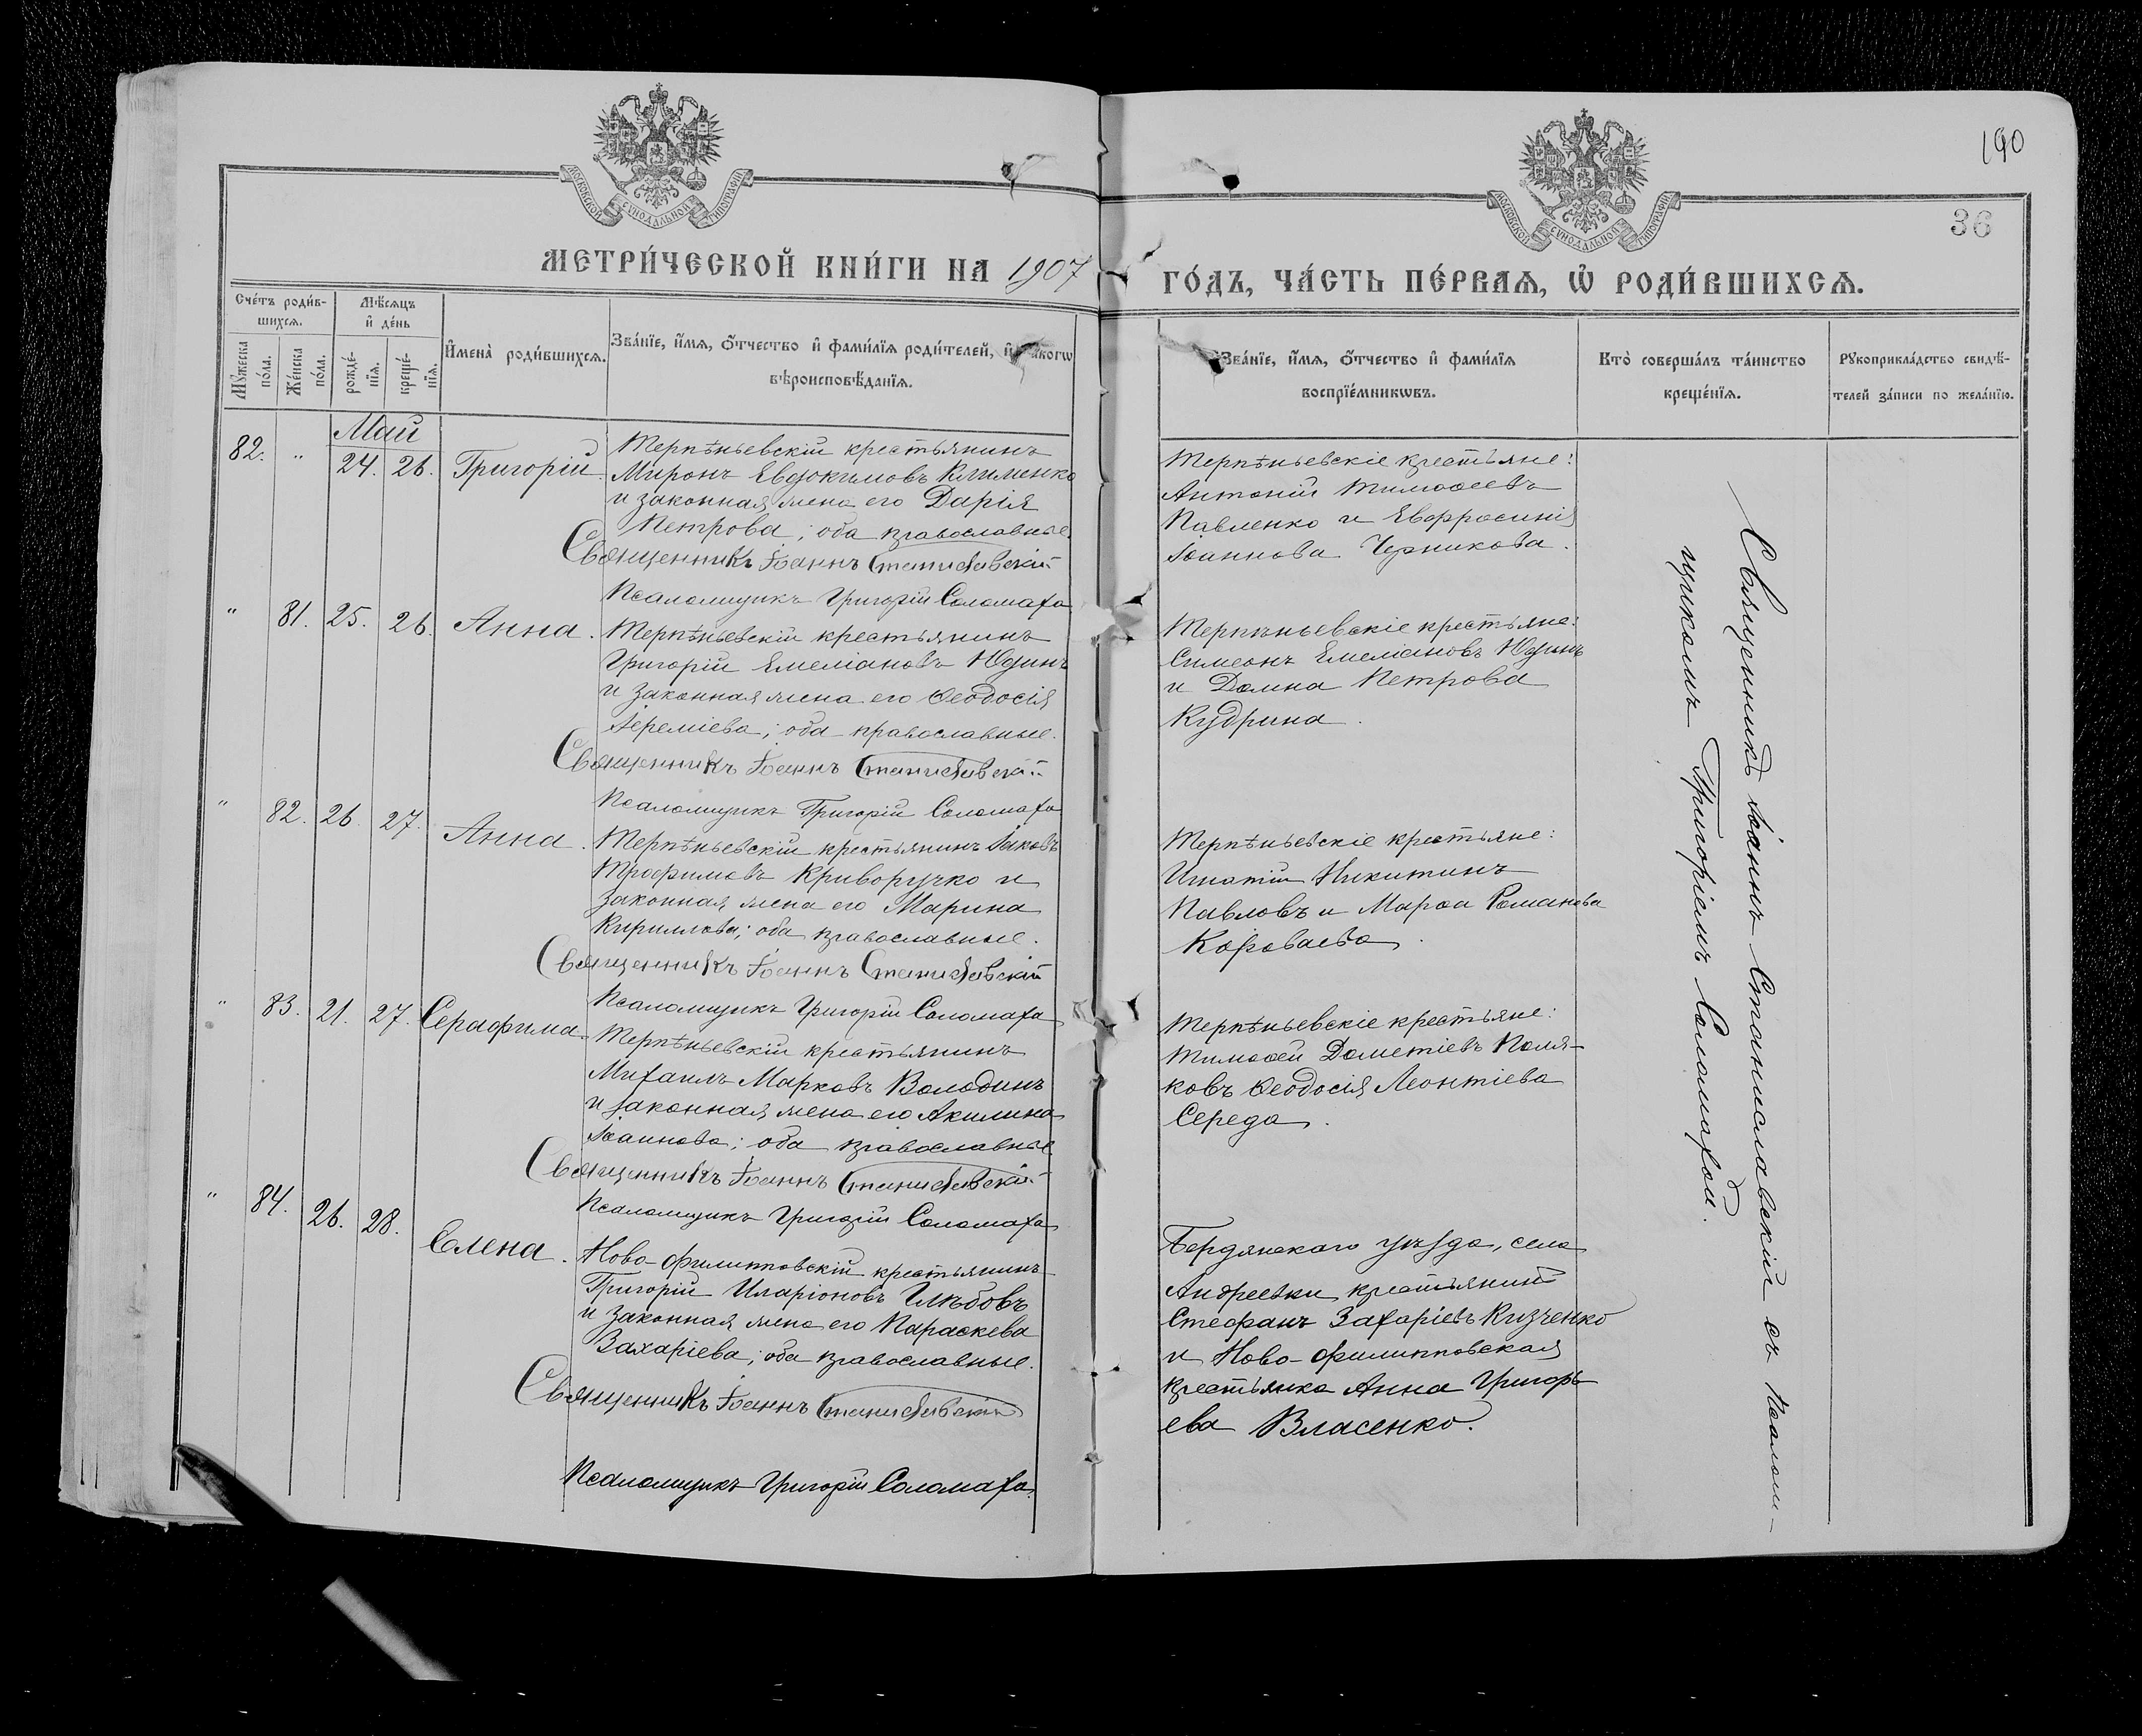 190
36
МОСКОВСКОЙ СѴНОДАЛЬНОЙ ТИПОГРАФІИ
МОСКОВСКОЙ СѴНОДАЛЬНОЙ ТИПОГРАФІИ
МЕТРИ́ЧЕСКОЙ КНИ́ГИ НА 1907
ГО́ДЪ, ЧА́СТЬ ПЕ́РВАѦ, Ѡ҆ РОДИ́ВШИХСѦ.
Сче́тъ роди́в-
шихсѧ.
Мѣ́сѧцъ
и҆ де́нь
Мꙋ́жеска
по́ла.
Же́нска
по́ла.
рожде́-
нїѧ.
креще́-
нїѧ.
И҆мена̀ роди́вшихсѧ.
Зва́нїе, и҆́мѧ, ѻ҆́тчество и҆ фами́лїѧ роди́телей, и҆
вѣроисповѣ́данїѧ.
Зва́нїе, и҆́мѧ, ѻ҆́тчество и҆ фами́лїѧ
воспрїе́мникѡвъ.
Кто̀ соверша́лъ та́инство
креще́нїѧ.
Рꙋкоприкла́дство свидѣ́-
телей за́писи по жела́нїю.
Май
82. " 24. 26. Григорій.
Терпѣньевскій крестьянинъ
Миронъ Евдокимовъ Клименко
и законная жена его Дарія
Петрова; оба православные.
Священникъ Іоаннъ Станиславскій
Псаломщикъ Григорій Соломаха
Терпѣньевскіе крестьяне:
Антоній Тимоѳеевъ
Павленко и Евфросинія
Іоаннова Черникова.
" 81. 25. 26. Анна.
Терпѣньевскій крестьянинъ
Григорій Емеліановъ Юдинъ
и законная жена его Ѳеодосія
Іереміева; оба православные.
Священникъ Іоаннъ Станиславскій
Псаломщикъ Григорій Соломаха
Терпѣньевскіе крестьяне:
Симеонъ Емеліановъ Юдинъ
и Домна Петрова
Кудрина.
" 82. 26. 27. Анна.
Терпѣньевскій крестьянинъ Іаковъ
Трофимовъ Криворучко и
законная жена его Марина
Кириллова; оба православные.
Священникъ Іоаннъ Станиславскій
Псаломщикъ Григорій Соломаха
Терпѣньевскіе крестьяне:
Игнатій Никитинъ
Павловъ и Марѳа Романова
Короваева.
" 83. 21. 27. Серафима.
Терпѣньевскій крестьянинъ
Михаилъ Марковъ Володинъ
и законная жена его Акилина
Іоаннова; оба православные
Священникъ Іоаннъ Станиславскій
Псаломщикъ Григорій Соломаха
Терпѣньевскіе крестьяне:
Тимоѳей Дометіевъ Поля-
ковъ Ѳеодосія Леонтіева
Середа.
" 84. 26. 28. Елена.
Ново-Филипповскій крестьянинъ
Григорій Иларіоновъ Глѣбовъ
и законная жена его Параскева
Захаріева; оба православные.
Священникъ Іоаннъ Станиславскій
Псаломщикъ Григорій Соломаха.
Бердянскаго уѣзда, села
Андреевки крестьянинъ
Стефанъ Захаріевъ
и Ново-Филипповская
крестьянка Анна Григорь
ева Власенко.
Священникъ Іоаннъ Станиславскій съ псалом-
щикомъ Григоріемъ Соломахой.